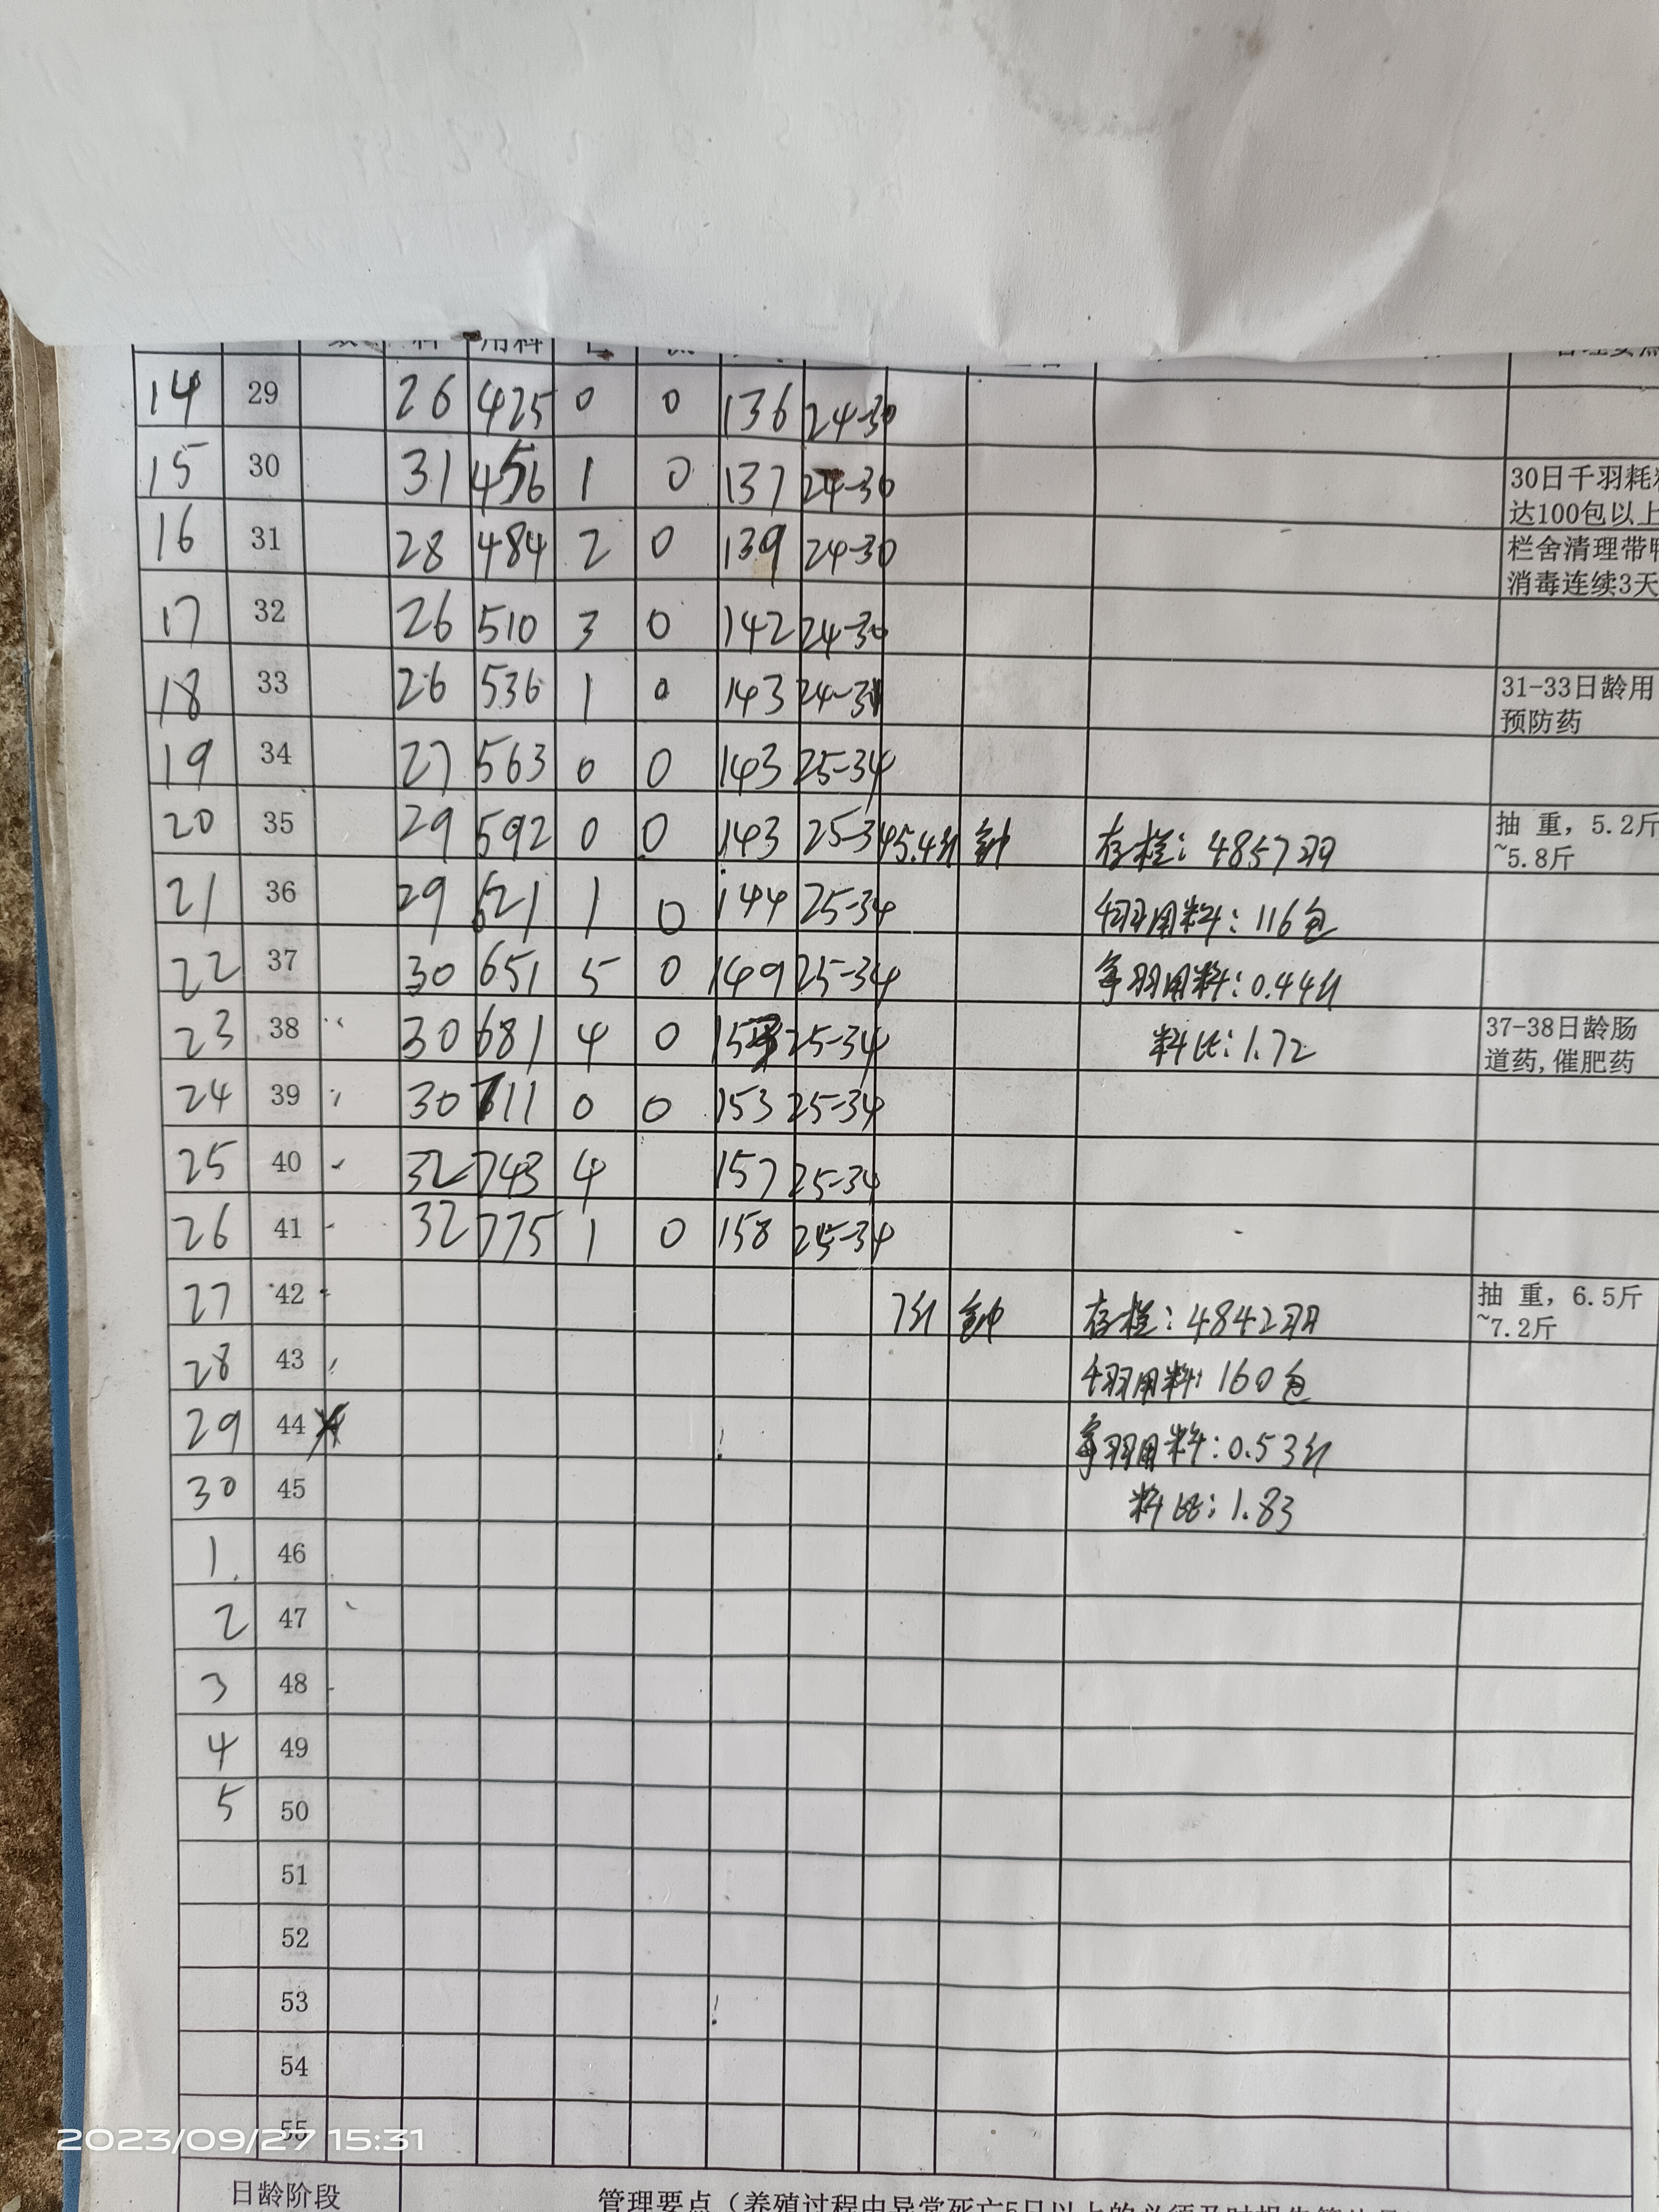 用料
14 29 26 425 0 0 136 24-30
15 30 31 456 1 0 137 24-30 30日千羽耗
达100包以上
16 31 28 484 2 0 139 24-30 栏舍清理带
消毒连续3天
17 32 26 510 3 0 142 24-30
18 33 26 536 1 0 143 24-31 31-33日龄用
预防药
19 34 27 563 0 0 143 25-34
20 35 29 592 0 0 143 25-3 5.4斤 存栏:4857羽 抽 重，5.2斤
~5.8斤
21 36 29 621 1 0 144 25-34 千羽用料:116包
22 37 30 651 5 0 149 25-34 每羽用料:0.44斤
23 38 30 681 4 0 153 25-34 料比:1.72 37-38日龄肠
道药,催肥药
24 39 30 711 0 0 153 25-34
25 40 32 743 4 157 25-34
26 41 32 775 1 0 158 25-34
27 42 7斤 存栏:4842羽 抽 重，6.5斤
~7.2斤
28 43 千羽用料:160包
29 44 每羽用料:0.53斤
30 45 料比:1.83
1 46
2 47
3 48
4 49
5 50
51
52
53
54
55
2023/09/27 15:31
日龄阶段 管理要点（养殖过程中异常死亡5日以上的必须及时报告